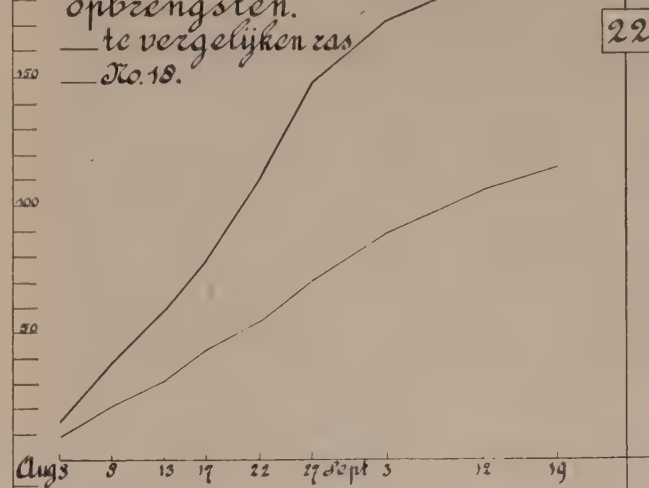 opbrengsten.
te vergelijken ras
No. 18.
22
150
100
50
Aug 3 9 13 17 22 27 Sept 3 12 19